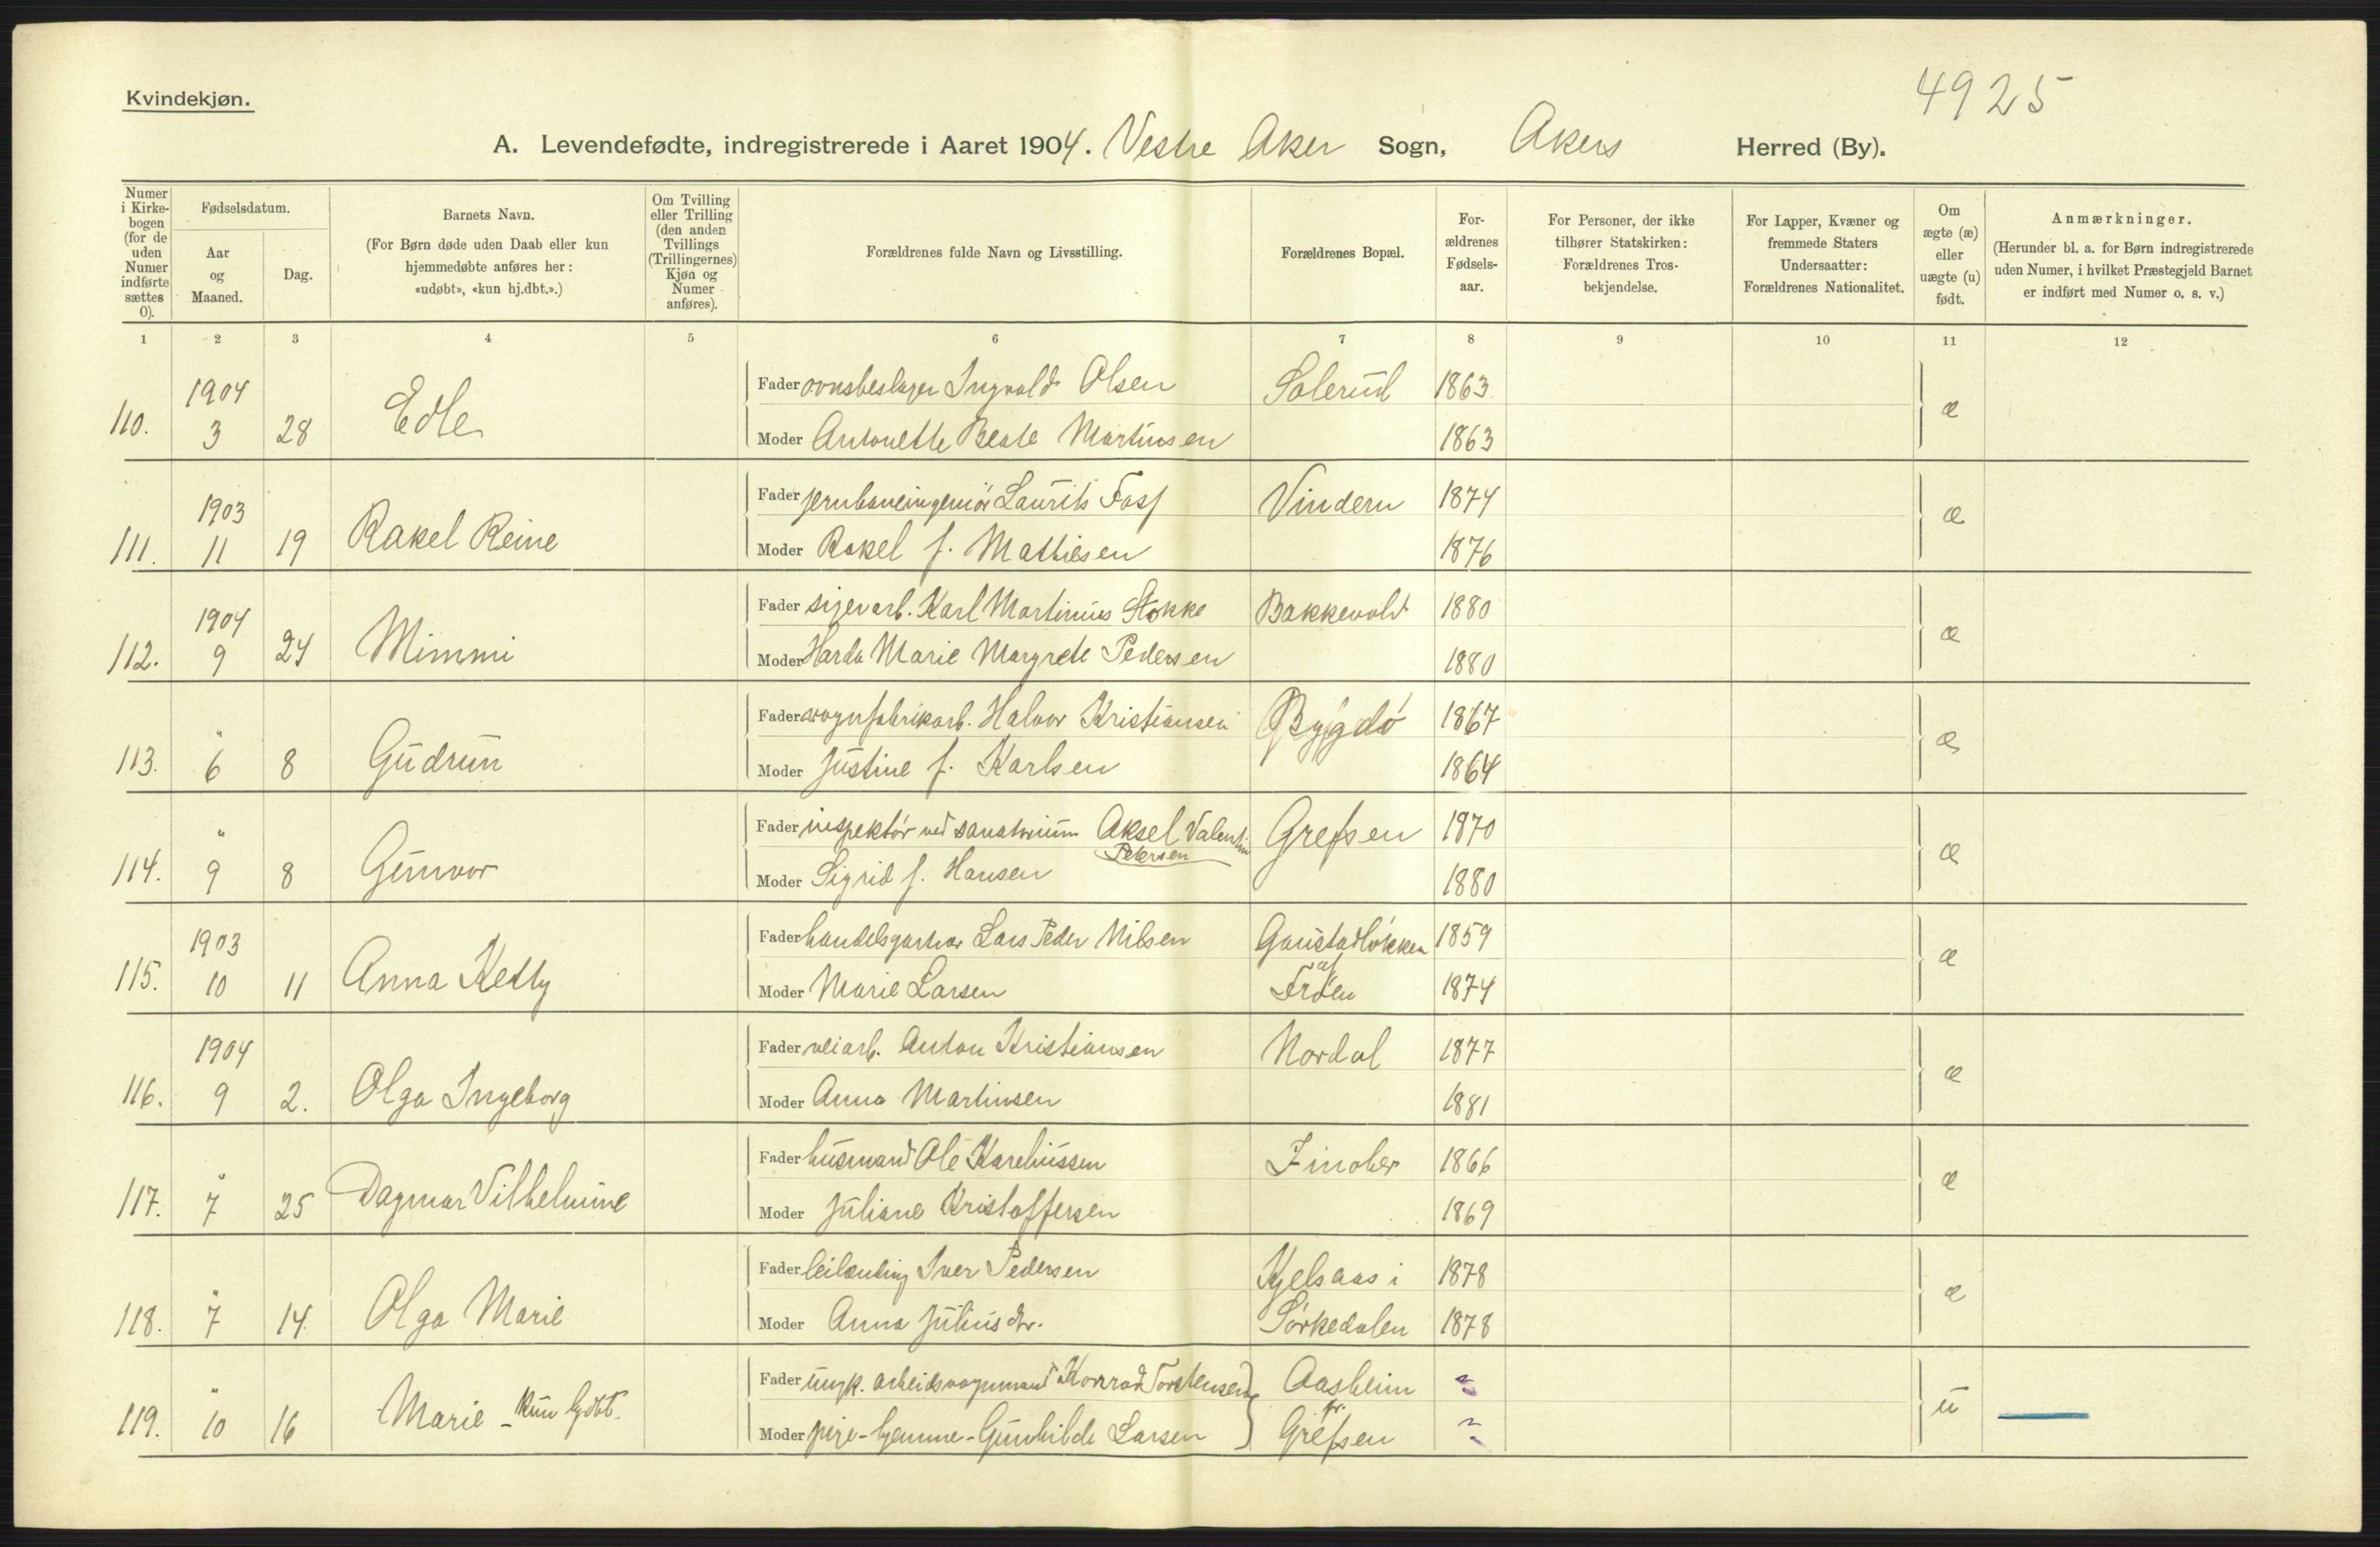 4925
Kvindekjøn.
A. Levendefødte, indregistrerede i Aaret 1904. Vestre Aker Sogn, Akers Herred (By).
Numer i Kirkebogen (for de uden Numer indførte sættes 0).
Fødselsdatum.
Aar og Maaned.
Dag.
Barnets Navn.
(For Børn døde uden Daab eller kun hjemmedøbte anføres her: «udøbt», «kun hj.dbt.».)
Om Tvilling eller Trilling (den anden Tvillings (Trillingernes) Kjøn og Numer anføres).
Forældrenes fulde Navn og Livsstilling.
Forældrenes Bopæl.
Forældrenes Fødselsaar.
For Personer, der ikke tilhører Statskirken: Forældrenes Trosbekjendelse.
For Lapper, Kvæner og fremmede Staters Undersaatter: Forældrenes Nationalitet.
Om ægte (æ) eller uægte (u) født.
Anmærkninger.
(Herunder bl. a. for Børn indregistrerede uden Numer, i hvilket Præstegjeld Barnet er indført med Numer o. s. v.)
1 2 3 4 5 6 7 8 9 10 11 12
110. 1904 3 28 Edle Fader ovnsbeslager Ingvald Olsen Solerud 1863 æ
Moder Antonette Beate Martinsen 1863
111. 1903 11 19 Rakel Reine Fader jernbaneingeniör Laurits Vindern 1874 æ
Moder Rakel f. Mathiesen 1876
112. 1904 9 24 Mimmi Fader Karl Martinius Stokke Bakkevold 1880 æ
Moder Harda Marie Margrete Pedersen 1880
113. " 6 8 Gudrun Fader vognfabrikarb. Halvor Kristiansen Bygdö 1867 æ
Moder Justine f. Karlsen 1864
114. " 9 8 Gunvor Fader inspektör ved sanatorium Aksel Valentin Petersen Grefsen 1870 æ
Moder Sigrid f. Hansen 1880
115. 1903 10 11 Anna Ketty Fader Lars Peder Nilsen Gaustadlökken 1859 æ
Moder Marie Larsen af Fröen 1874
116. 1904 9 2. Olga Ingeborg Fader veiarb. Anton Kristiansen Nordal 1877 æ
Moder Anna Martinsen 1881
117. " 7 25 Dagmar Vilhelmine Fader husmand Ole Kareliussen Zinober 1866 æ
Moder Juliane Kristoffersen 1869
118. " 7 14. Olga Marie Fader leilænding Iver Pedersen Kjelsaas i 1878 æ
Moder Anna Juliusdtr. Sörkedalen 1878
119. " 10 16 Marie - kun hjdbt. Fader ungk. arbeidsvognmand Konrad Torstensen Aasheim u
Moder pige - hjemme - Gunhilde Larsen pr. Grefsen